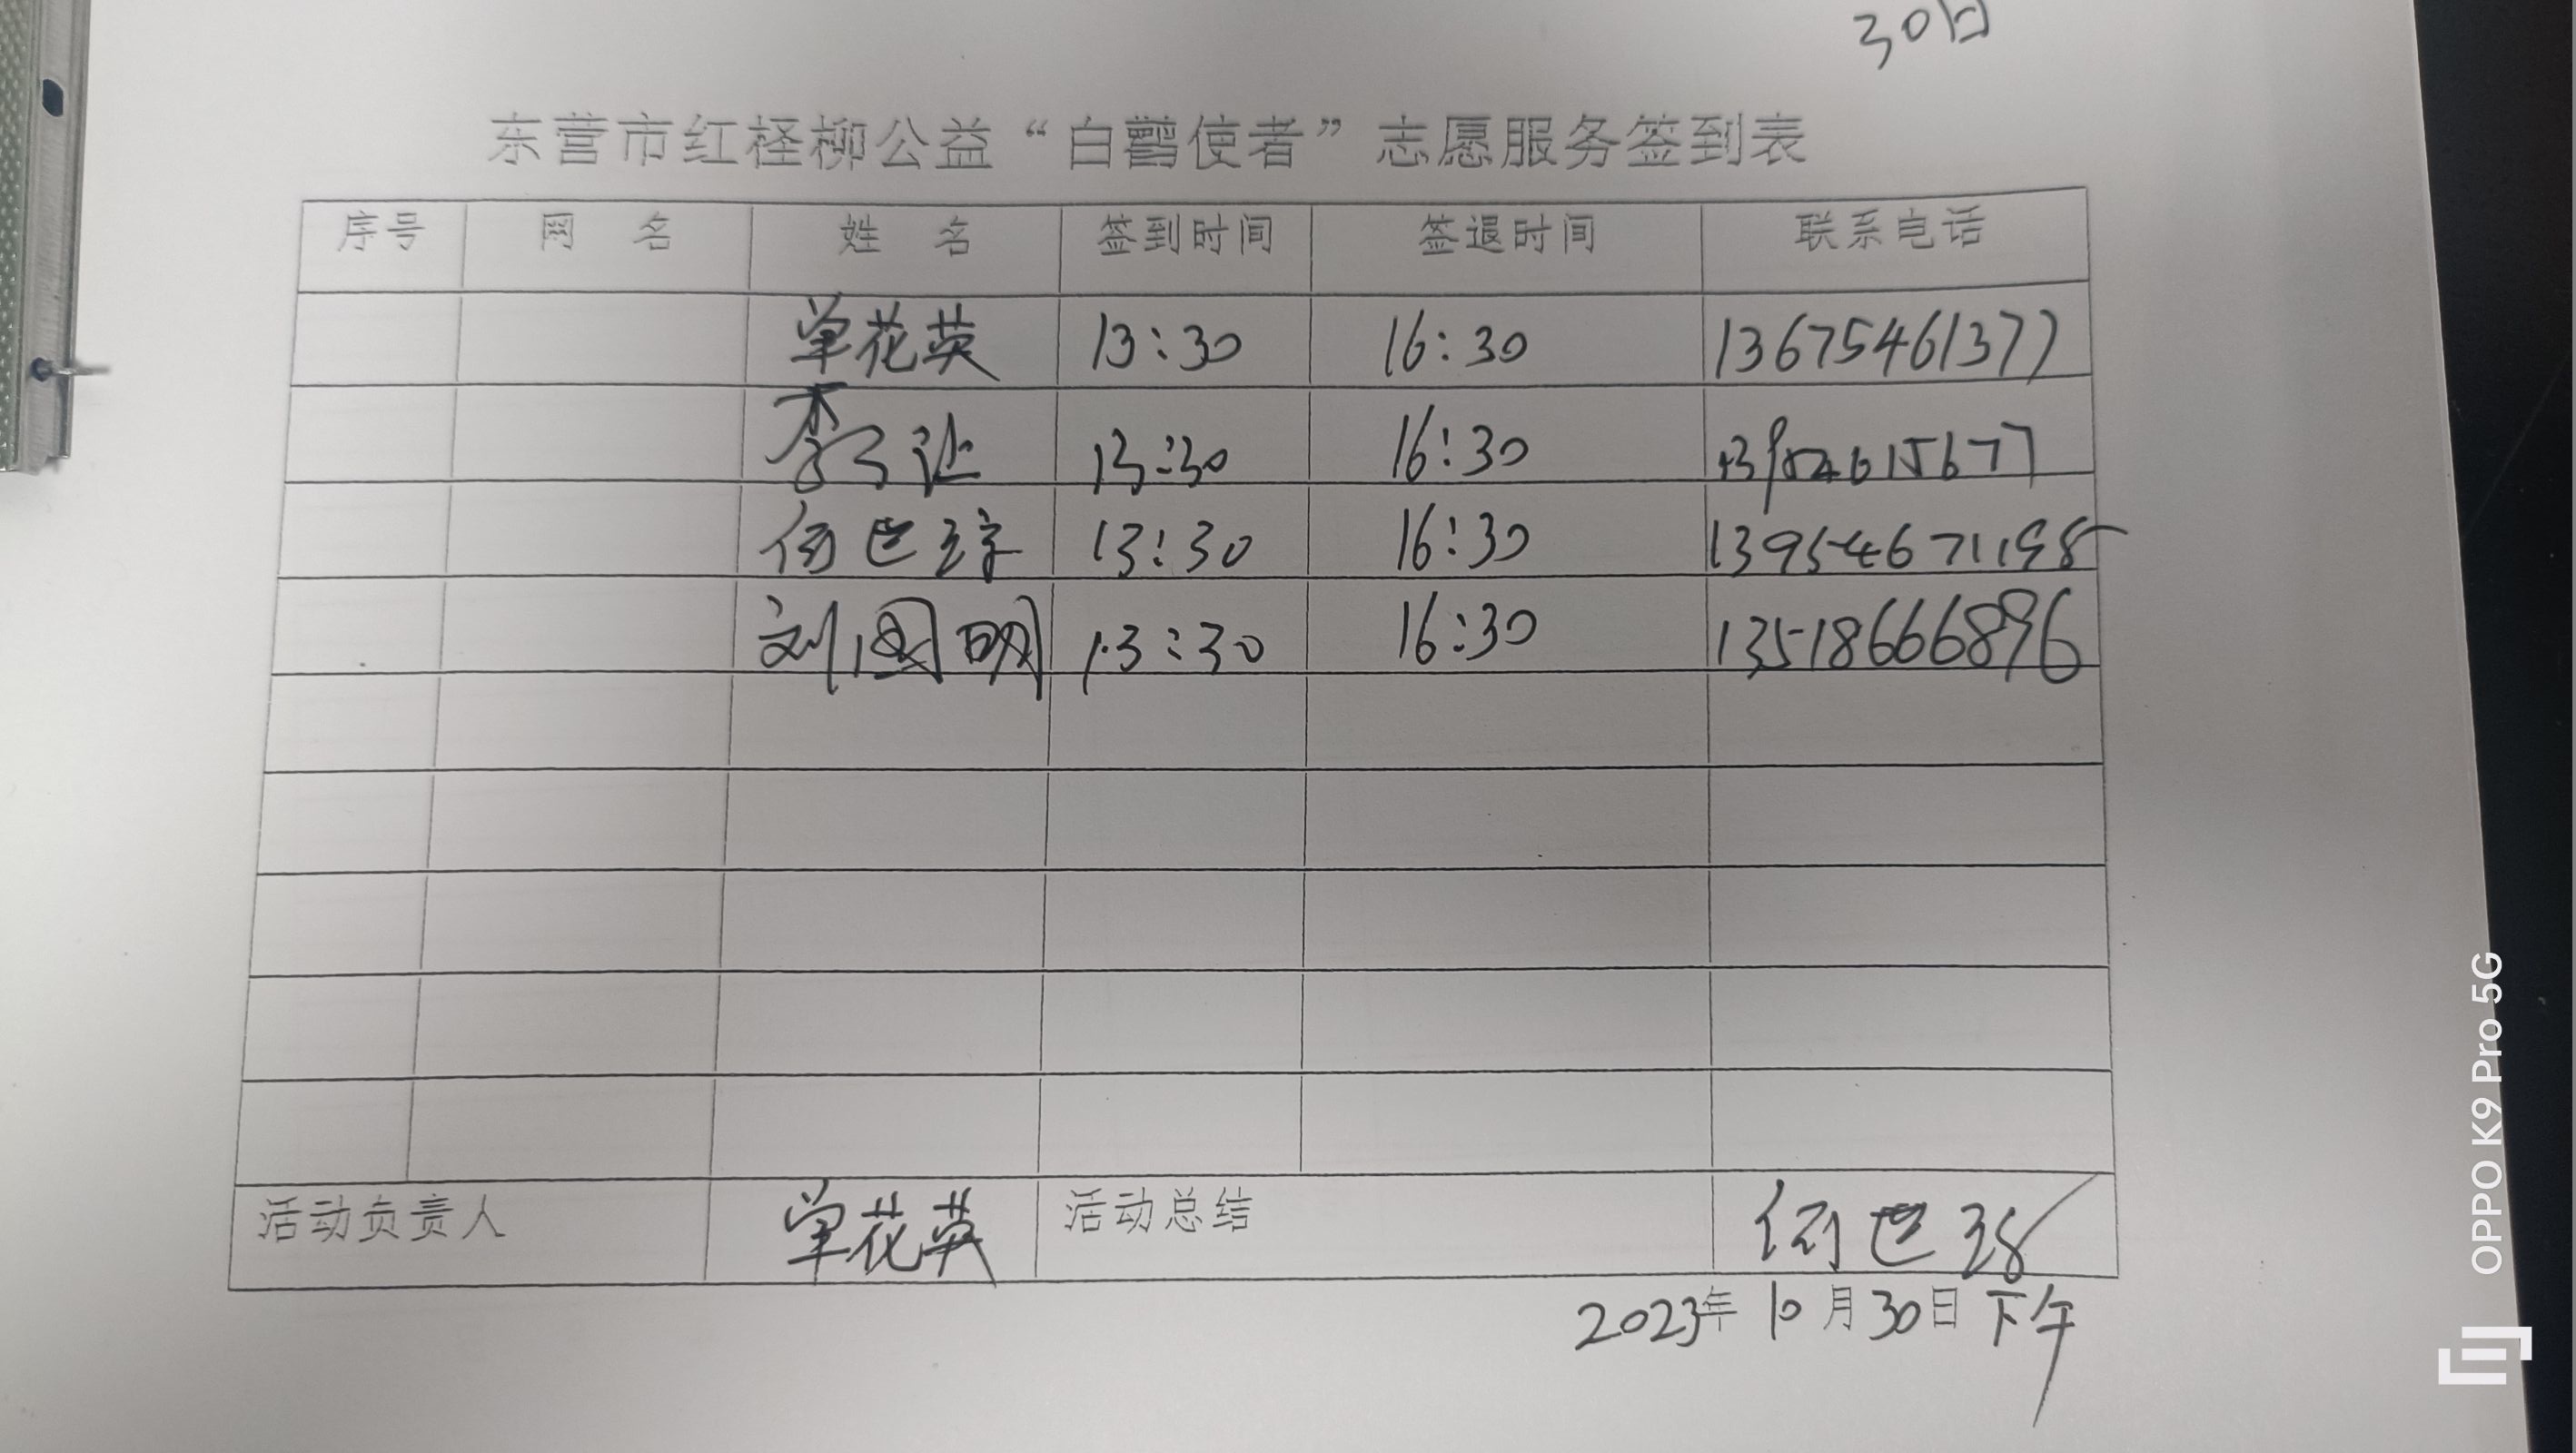 30日
东营市红柽柳公益“白鹳使者”志愿服务签到表
序号 网 名 姓 名 签到时间 签退时间 联系电话
单花英 13:30 16:30 13675461377
李 让 13:30 16:30
世 13:30 16:30 13954671198
刘国明 13:30 16:30 13518666896
活动负责人 单花英 活动总结 世
2023年10月30日下午
OPPO K9 Pro 5G